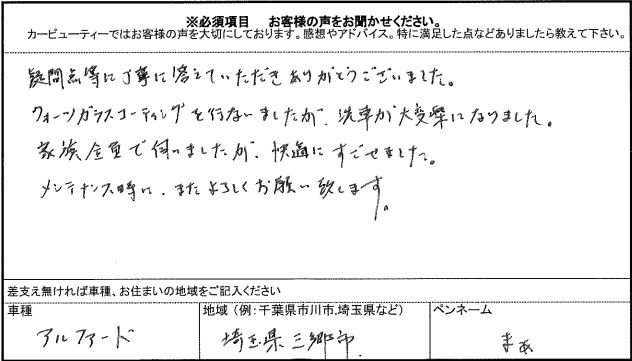 ※必須項目　お客様の声をお聞かせください。
カービューティーではお客様の声を大切にしております。感想やアドバイス。特に満足した点などありましたら教えて下さい。
疑問点等に丁寧に答えていただきありがとうございました。
クォーツガラスコーティングを行ないましたが、洗車が大変楽になりました。
家族全員で伺いましたが、快適にすごせました。
メンテナンス時に、またよろしくお願い致します。
差支え無ければ車種、お住まいの地域をご記入ください
車種　地域（例：千葉県市川市,埼玉県など）　ペンネーム
アルファード　埼玉県三郷市　まぁ